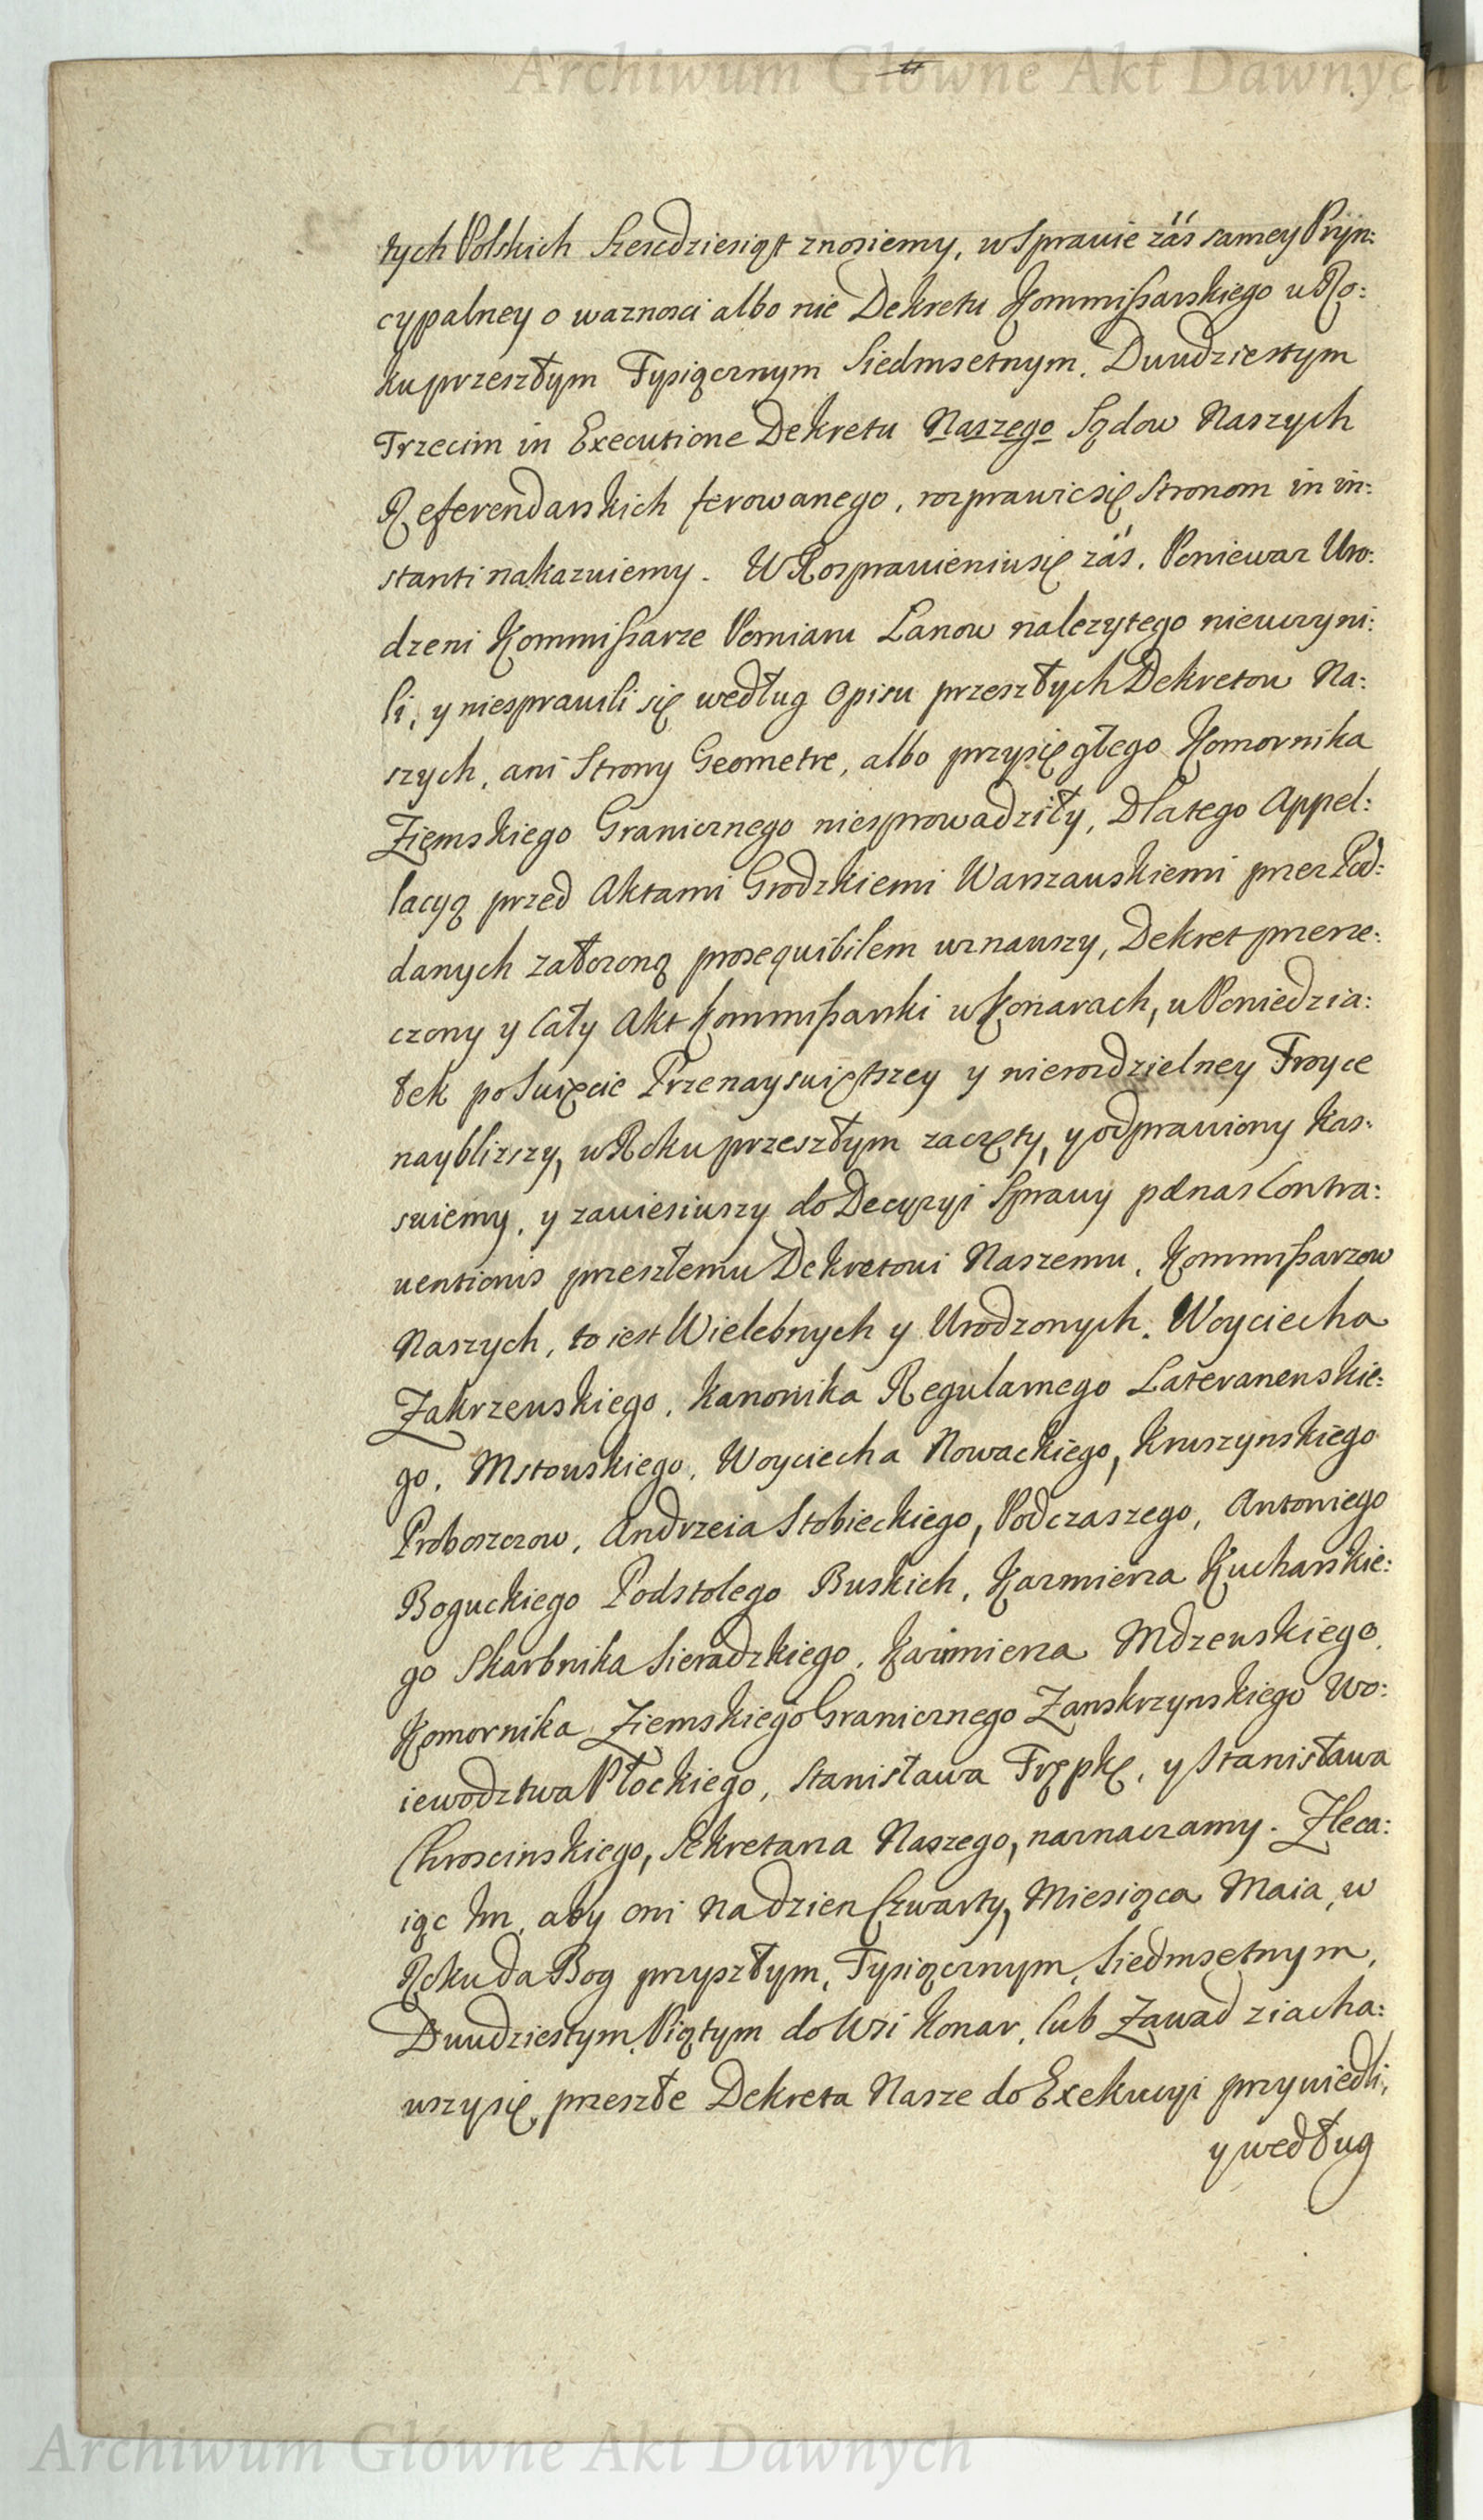 Archiwum Główne Akt Dawnych
tych Polskich Szescdziesiąt znosiemy, w Sprawie záś samey Pryn:
cypalney o waznosci albo nie Dekretu Kommissarskiego w Ro:
ku przeszłym Tysiącznym Siedmsetnym. Dwudziestym
Trzecim in Executione Dekretu Naszego Sądow Naszych
Referendarskich ferowanego, rozprawic się Stronom in in:
stanti nakazuiemy. W Rozprawieniu się záś. Poniewaz Uro:
dzeni Kommissarze Pomiaru Lanow nalezytego nieuczyni:
li, y niesprawili się według Opisu przeszłych Dekretow Na:
szych, ani Strony Geometre, albo przysięgłego Komornika
Ziemskiego Granicznego niesprowadziły, Dlatego Appel:
lacyą przed Aktami Grodzkiemi Warszawskiemi przez Pod:
danych założoną prosequibilem uznawszy, Dekret przerze:
czony y Cały Akt Kommissarski w Konarach, w Poniedzia:
łek po Swięcie Przenayswiętszey y nierozdzielney Troyce
nayblizszy, w Roku przeszłym zaczęty, y odprawiony Kas:
suiemy, y zawiesiwszy do Decyzyi Sprawy pœnas Contra:
uentionis przeszłemu Dekretowi Naszemu, Kommissarzow
Naszych, to iest Wielebnych y Urodzonych. Woyciecha
Zakrzewskiego, Kanonika Regularnego Lateranenskie:
go, Mstowskiego, Woyciecha Nowackiego, Kruszynskiego
Proboszczow, Andrzeia Stobieckiego, Podczaszego, Antoniego
Boguckiego Podstolego Buskich, Kazmierza Kucharskie:
go Skarbnika Sieradzkiego, Kazimierza Mdzewskiego
Komornika Ziemskiego Granicznego Zawskrzynskiego Wo:
iewodztwa Płockiego, Stanisława Trępkę, y Stanisława
Chroscinskiego, Sekretarza Naszego, naznaczamy. Zleca:
iąc Im, aby oni na dzien Czwarty, Miesiąca Maia, w
Roku da Bog przyszłym, Tysiącznym, Siedmsetnym,
Dwudziestym, Piątym do Wsi Konar, lub Zawad ziacha:
wszy się, przeszłe Dekreta Nasze do Exekucyi przywiedli,
y według
Archiwum Główne Akt Dawnych